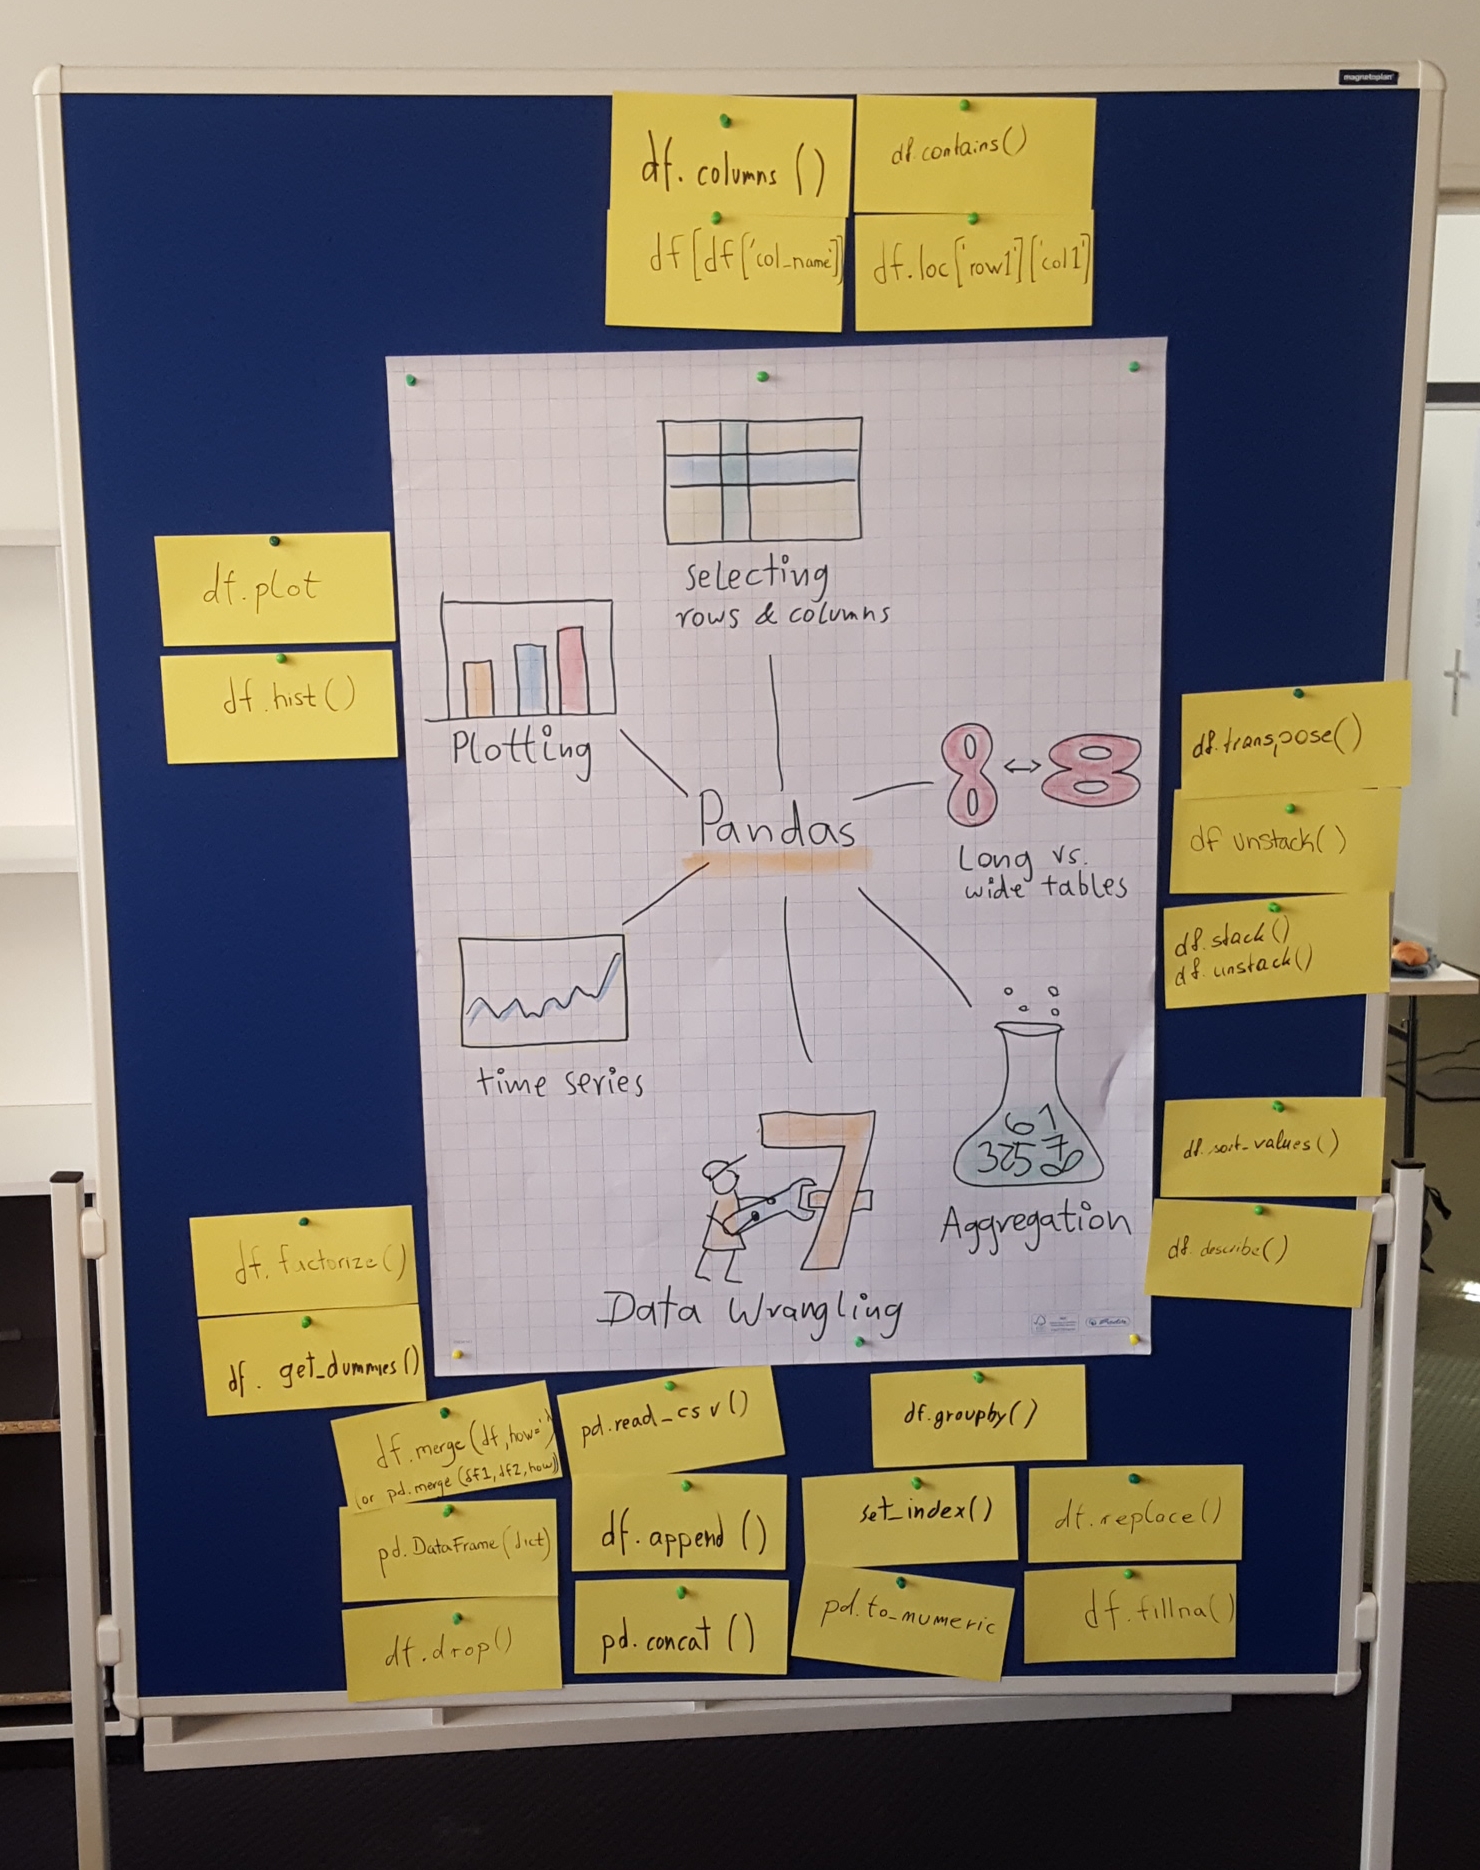 magnetoplan
df.columns()
df.contains()
df[df['col_name']]
df.loc['row1']['col1']
selecting
rows & columns
df.plot
df.hist()
Plotting
Pandas
8 ↔ 8
Long vs.
wide tables
df.transpose()
df unstack()
df.stack()
df.unstack()
time series
7
61
3257
8
Aggregation
df.sort_values()
df.describe()
Data Wrangling
df.factorize()
df. get_dummies()
df.merge(df, how='
(or pd.merge(df1, df2, how))
pd.read_csv()
df.groupby()
pd.DataFrame(dict)
df.append()
set_index()
df.replace()
df.drop()
pd.concat()
pd.to_numeric
df.fillna()